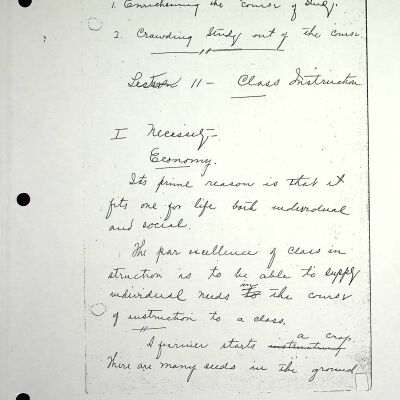 1. Enrichening the course of Study.
2. Crowding Study out of the course.
Lecture 11 – Class Instruction
I Necessity –
Economy.
Its prime reason is that it
fits one for life both individual
and social.
The par excellence of class in
struction is to be able to supply
individual needs in to the course
of instruction to a class.
A farmer starts instruction a crop.
There are many seeds in the ground